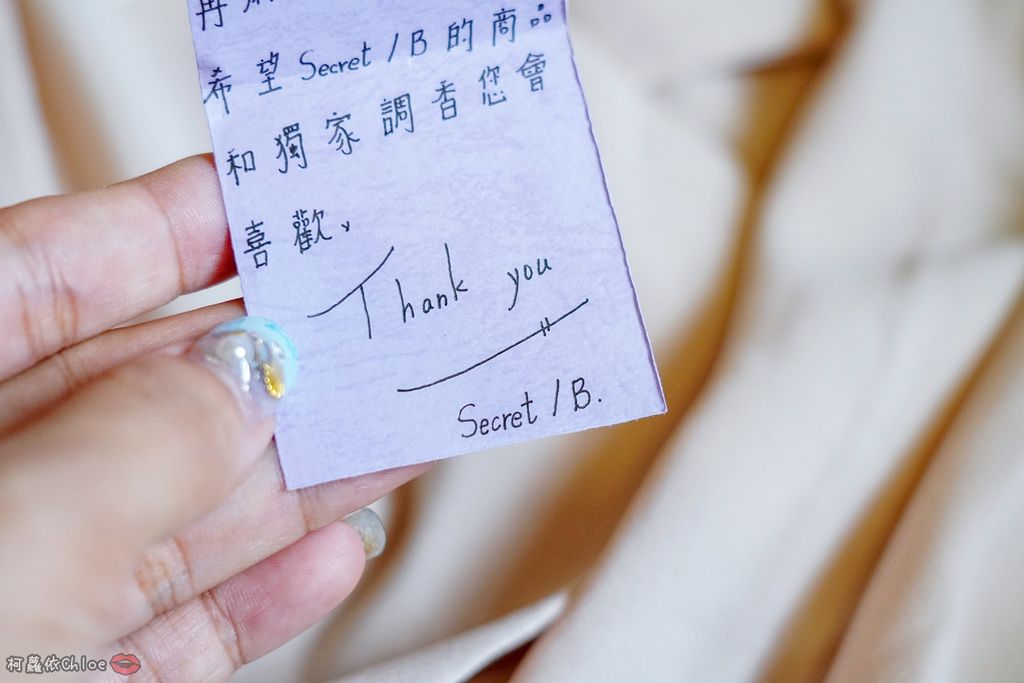 再
希望 Secret / B 的商品
和獨家調香您會
喜歡、
Thank you
Secret / B.
柯蘿依Chloe